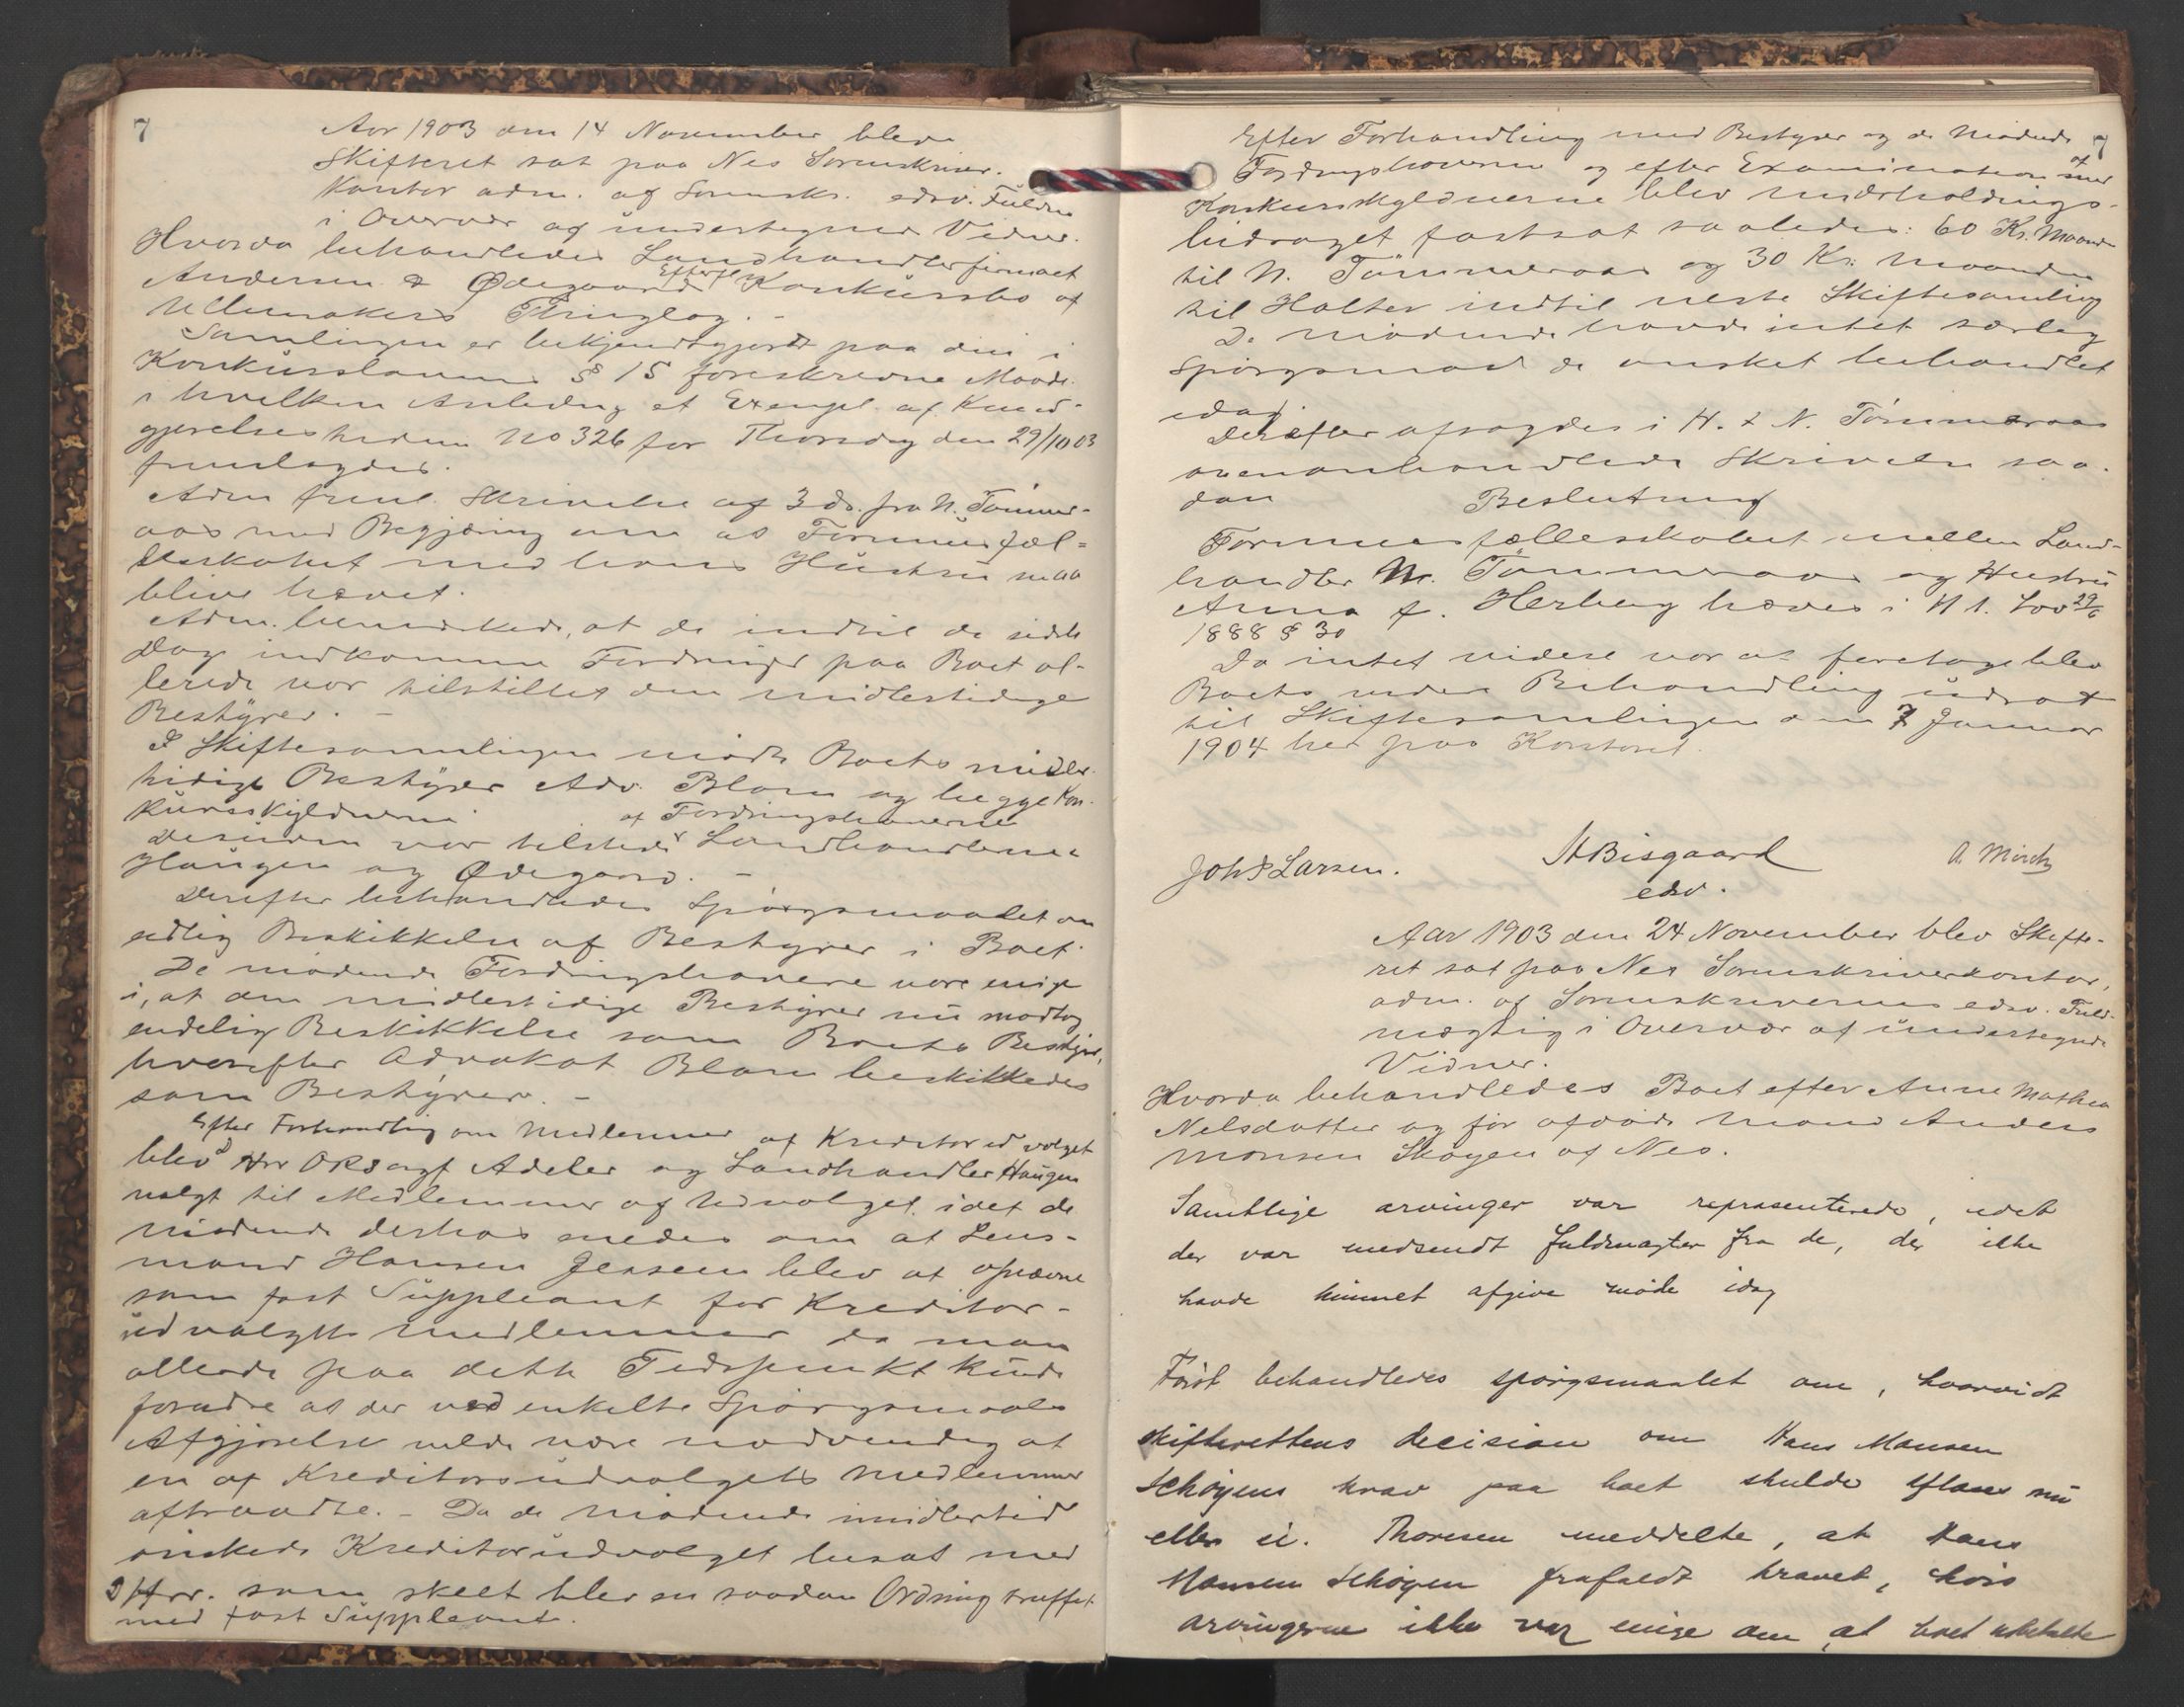 7
Aar 1903 den 14 November blev
Skifteret sat paa Nes Sorenskriver-
Kontor adm. af Sorenskr. edsv. Fuldm
i Overvær af undertegnede Vidner.
Hvorda behandledes Landhandlerfirmaet
Andersen & Ødegaards Efterf Konkursbo af
Ullensakers Thinglag. -
Samlingen er bekjendtgjort paa den i
Konkursloven § 15 foreskrevne Maade
i hvilken Anledng et Exempl. af Kund-
gjørelsestidene No 326 for Thorsdag den 29/10 03
fremlagdes.
Adm freml. Skrivelse af 3 ds. fra N. Tømmer-
aas med Begjæring om at Formuesfæl-
lesskabet med hans Hustru maa
blive hævet.
Adm. bemærkede, at de indtil de sidste
Dage indkomne Fordringer paa Boet al-
lerede var tilstillet den midlertidige
Bestyrer. -
I Skiftesamlingen mødte Boets midler-
tidige Bestyrer Adv. Blom og begge Kon-
kursskyldnerne
Desuden var tilstede af Fordringshaverne Landhandlerne
Haugen og Ødegaard. -
Derefter behandledes Spørgsmaalet om
endlig Beskikkelse af Bestyrer i Boet.
De mødende Fordringshavere vare enige
i, at den midlertidige Bestyrer nu modtog
endelig Beskikkelse som Boets Bestyrer,
hvorefter Advokat Blom beskikkedes
som Bestyrer. -
Efter Forhandling om Medlemmer af Kreditorudvalget
blev Hrr ORSagf Adeler og Landhandler Haugen
valgt til Medlemmer af Udvalget idet de
mødende derhos enedes om at Lens-
mand Hansen Jensen blev at opnævne
som fast Suppleant for Kreditor-
udvalgets medlemmer da man
allerede paa dette Tidspunkt kunde
forudse at der ved enkelte Spørgsmaals
Afgjørelse vilde være nødvendig at
en af Kreditorudvalgets medlemmer
aftraadte. - Da de mødende imidlertid
ønskede Kreditorudvalget besat med
2 Hrr. som skeet blev en saadan Ordning truffet
med fast Suppleant.
7
Efter Forhandling med Bestyrer og de mødende
Fordringshaverne og efter Examination af
Konkursskyldnerne blev underholdnings-
bidraget fastsat saaledes: 60 Kr. Maaned
til N. Tømmeraas og 30 Kr. maaneden
til Holter indtil neste Skiftesamling
De mødende havde intet særlig
Spørgsmaal de ønsket behandlet
idag.
Derefter afsagdes i H. t. N. Tømmeraas
ovenomhandlede Skrivelse saa-
dan Beslutning
Formuesfællesskabet mellem Land-
handler N. Tømmeraas og Hustru
Anna f. Herberg hæves i H t. Lov 29/6
1888 § 30
Da intet videre var at foretage blev
Boets videre Behandling udsat
til Skiftesamlingen den 7 Januar
1904 her paa Kontoret.
Joh Larsen. ABisgaard A. Mørch
edsv.
Aar 1903 den 24 November blev Skifte-
ret sat paa Nes Sorenskriverkontor,
adm. af Sorenskriverens edsv. Fuld-
mægtig i Overvær af undertegnede
Vidner.
Hvorda behandledes Boet efter Anne Mathea
Nelsdatter og før afdøde Mand Anders
Monsen Skøyen af Nes.
Samtlige arvinger var repræsenterede, idet
der var medsendt fuldmagter fra de, der ikke
havde kunnet afgive møde idag
Først behandledes spørgsmaalet om, hvorvidt
skifterettens decision om Hans Monsen
Schøyens krav paa boet skulde afsies nu
eller ei. Thoresen meddelte, at Hans
Monsen Schøyen frafaldt kravet, hvis
arvingerne ikke var enige om, at boet udbetalte